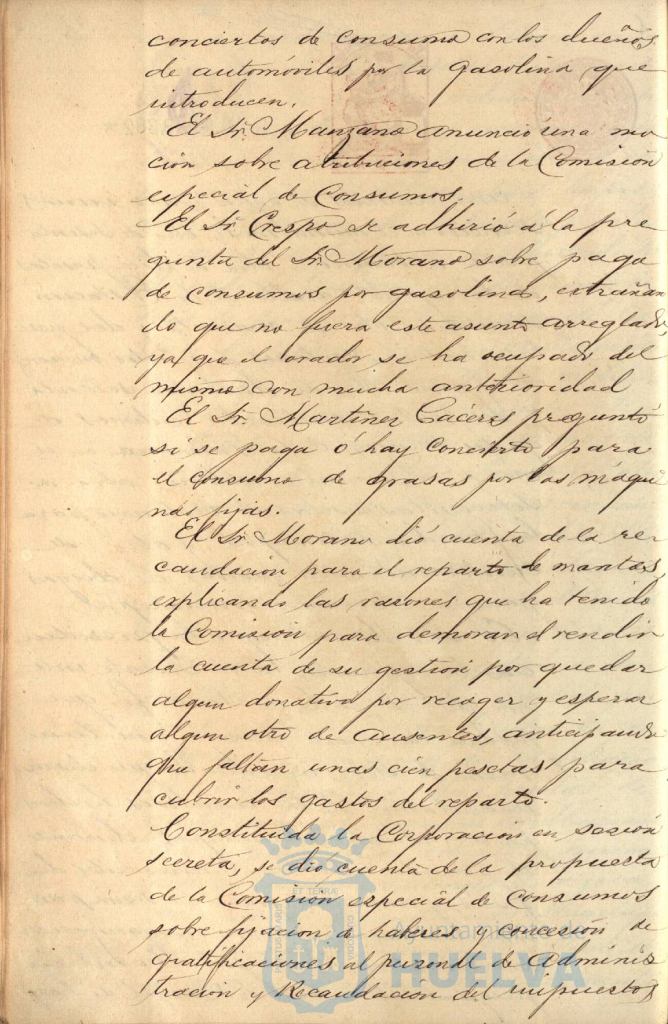 conciertos de consumo con los dueños
de automóviles por la gasolina que
introducen.
El Sr. Manzano anunció una mo
ción sobre atribuciones de la Comisión
especial de Consumos.
El Sr. Crespo se adhirió á la pre
gunta del Sr. Morano sobre pago
de consumos por gasolina, extrañan
do que no fuera este asunto arreglado,
ya que el orador se ha ocupado del
mismo con mucha anterioridad
El Sr. Martinez Cáceres preguntó
si se paga ó hay concierto para
el consumo de grasas por las máqui
nas fijas.
El Sr. Morano dió cuenta de la re
caudación para el reparto de mantas,
explicando las razones que ha tenido
la Comisión para demorar el rendir
la cuenta de su gestión por quedar
algun donativo por recoger y esperar
algun otro de ausentes, anticipando
que faltan unas cien pesetas para
cubrir los gastos del reparto.
Constituida la Corporación en sesión
secreta, se dio cuenta de la propuesta
de la Comisión especial de consumos
sobre fijacion de haberes y concesión de
gratificaciones al personal de Adminis
tracion y Recaudacion del impuestos
Ayuntamiento de
HUELVA